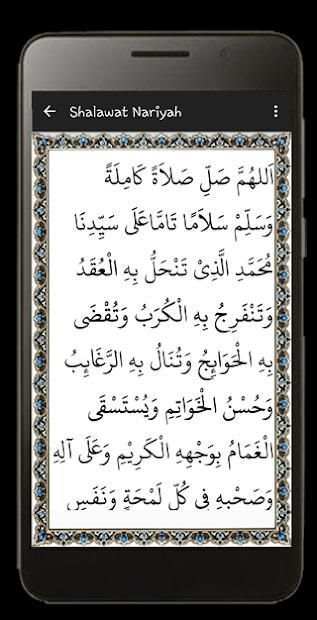 Shalawat Nariyah
اَللهُمَّ صَلِّ صَلاَةً كَامِلَةً
وَسَلِّمْ سَلاَمًا تَامًّاعَلَى سَيِّدِنَا
مُحَمَّدِ الَّذِىْ تَنْحَلُّ بِهِ الْعُقَدُ
وَتَنْفَرِجُ بِهِ الْكُرَبُ وَتُقْضَى
بِهِ الْحَوَائِجُ وَتُنَالُ بِهِ الرَّغَائِبُ
وَحُسْنُ الْخَوَاتِمِ وَيُسْتَسْقَى
الْغَمَامُ بِوَجْهِهِ الْكَرِيْمِ وَعَلَى آلِهِ
وَصَحْبِهِ فِى كُلِّ لَمْحَةٍ وَنَفَسٍ